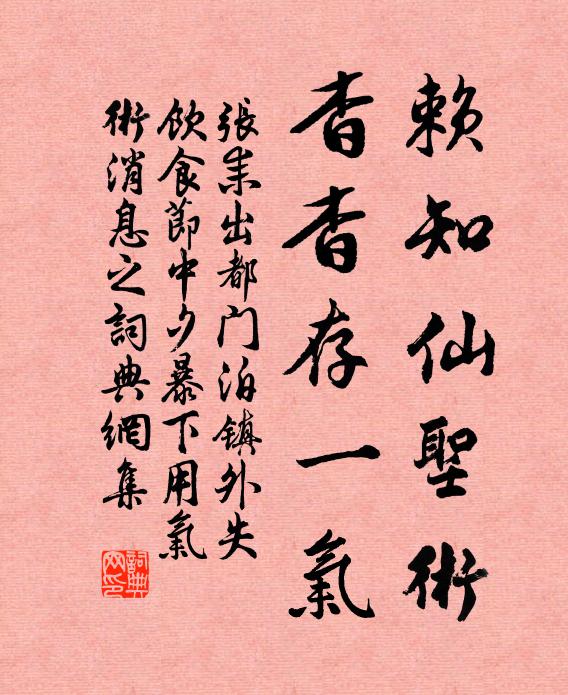 賴知仙聖術
杳杳存一氣
張耒出都門泊鎮外失
飲食節中夕暴下用氣
術消息之詞典網集
詞典
网印